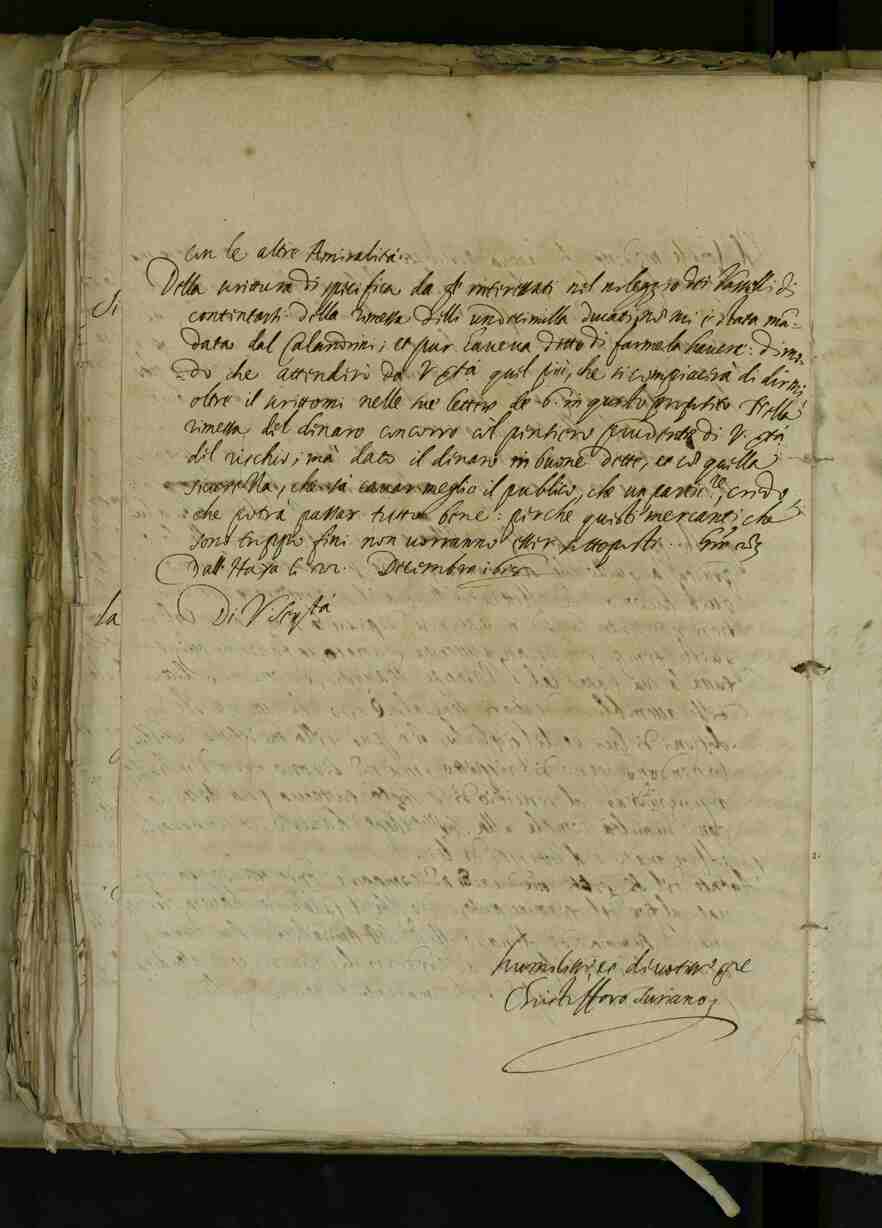 con le altre Amiralità.
Della scrittura di specifica da gl' interessati nel noleggio dei Vasselli di
contintarsi della rimessa delli undecimilla ducati non mi è stata man-
data dal Calandrini; et pur haveva detto di farmela havere: di mo-
do che attenderò da V. S.tà quel più, che si compiacerà di dirmi
oltre il scrittomi nelle sue lettere de 6. in questo proposito. Della
rimessa del dinaro concorro col pensiero prudente di V. S.tà
del rischio; mà dato il dinaro in buone dette, et con quella
sicurezza, che sà cavar meglio il publico, che un partic.re, credo
che potrà passar tutto bene: perche questi mercanti che
sono troppo fini non vorranno esser sottoposti.
Dall' Haya li Decembre
Di V. Ser.tà
humiliss.o, et devotiss.o ser.re
Christofforo Suriano